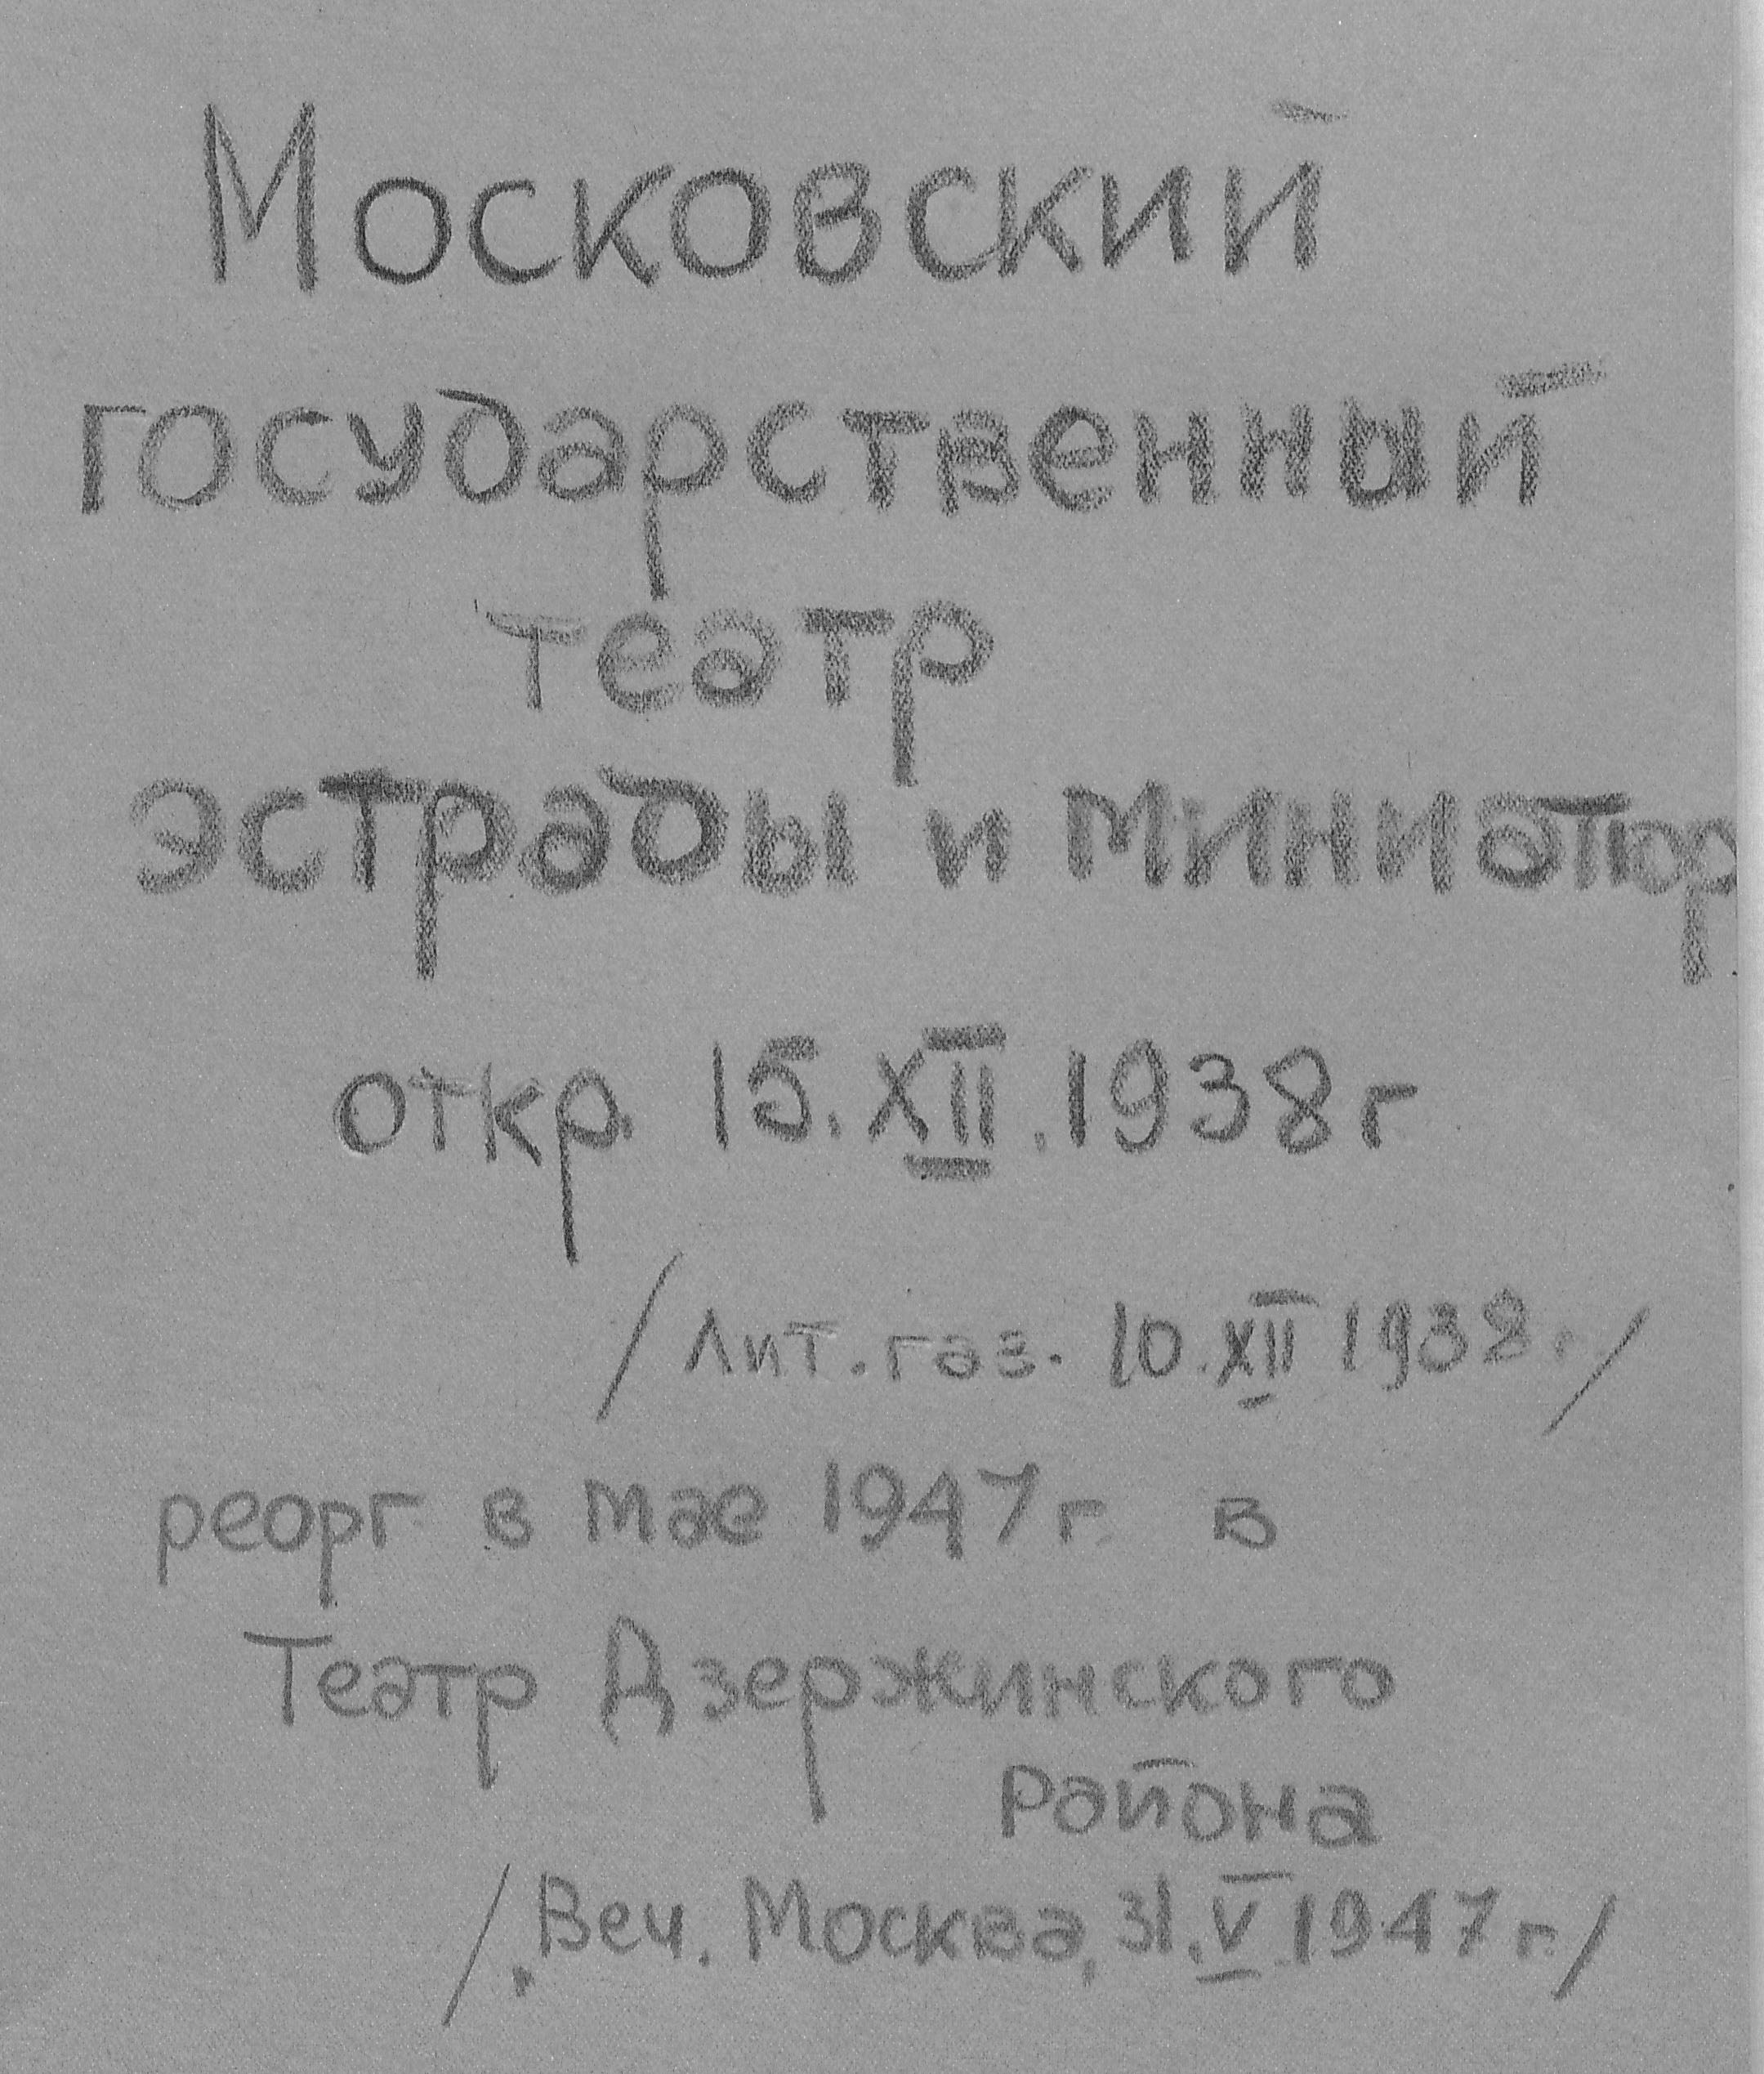 Московский
государственный
театр
эстрады и миниатюр
откр. 15.XII.1938г
/Лит.газ. 10.XII 1938г./
реорг в мае 1947г. в
Театр Дзержинского
района
/.Веч. Москва, 31.V.1947г./